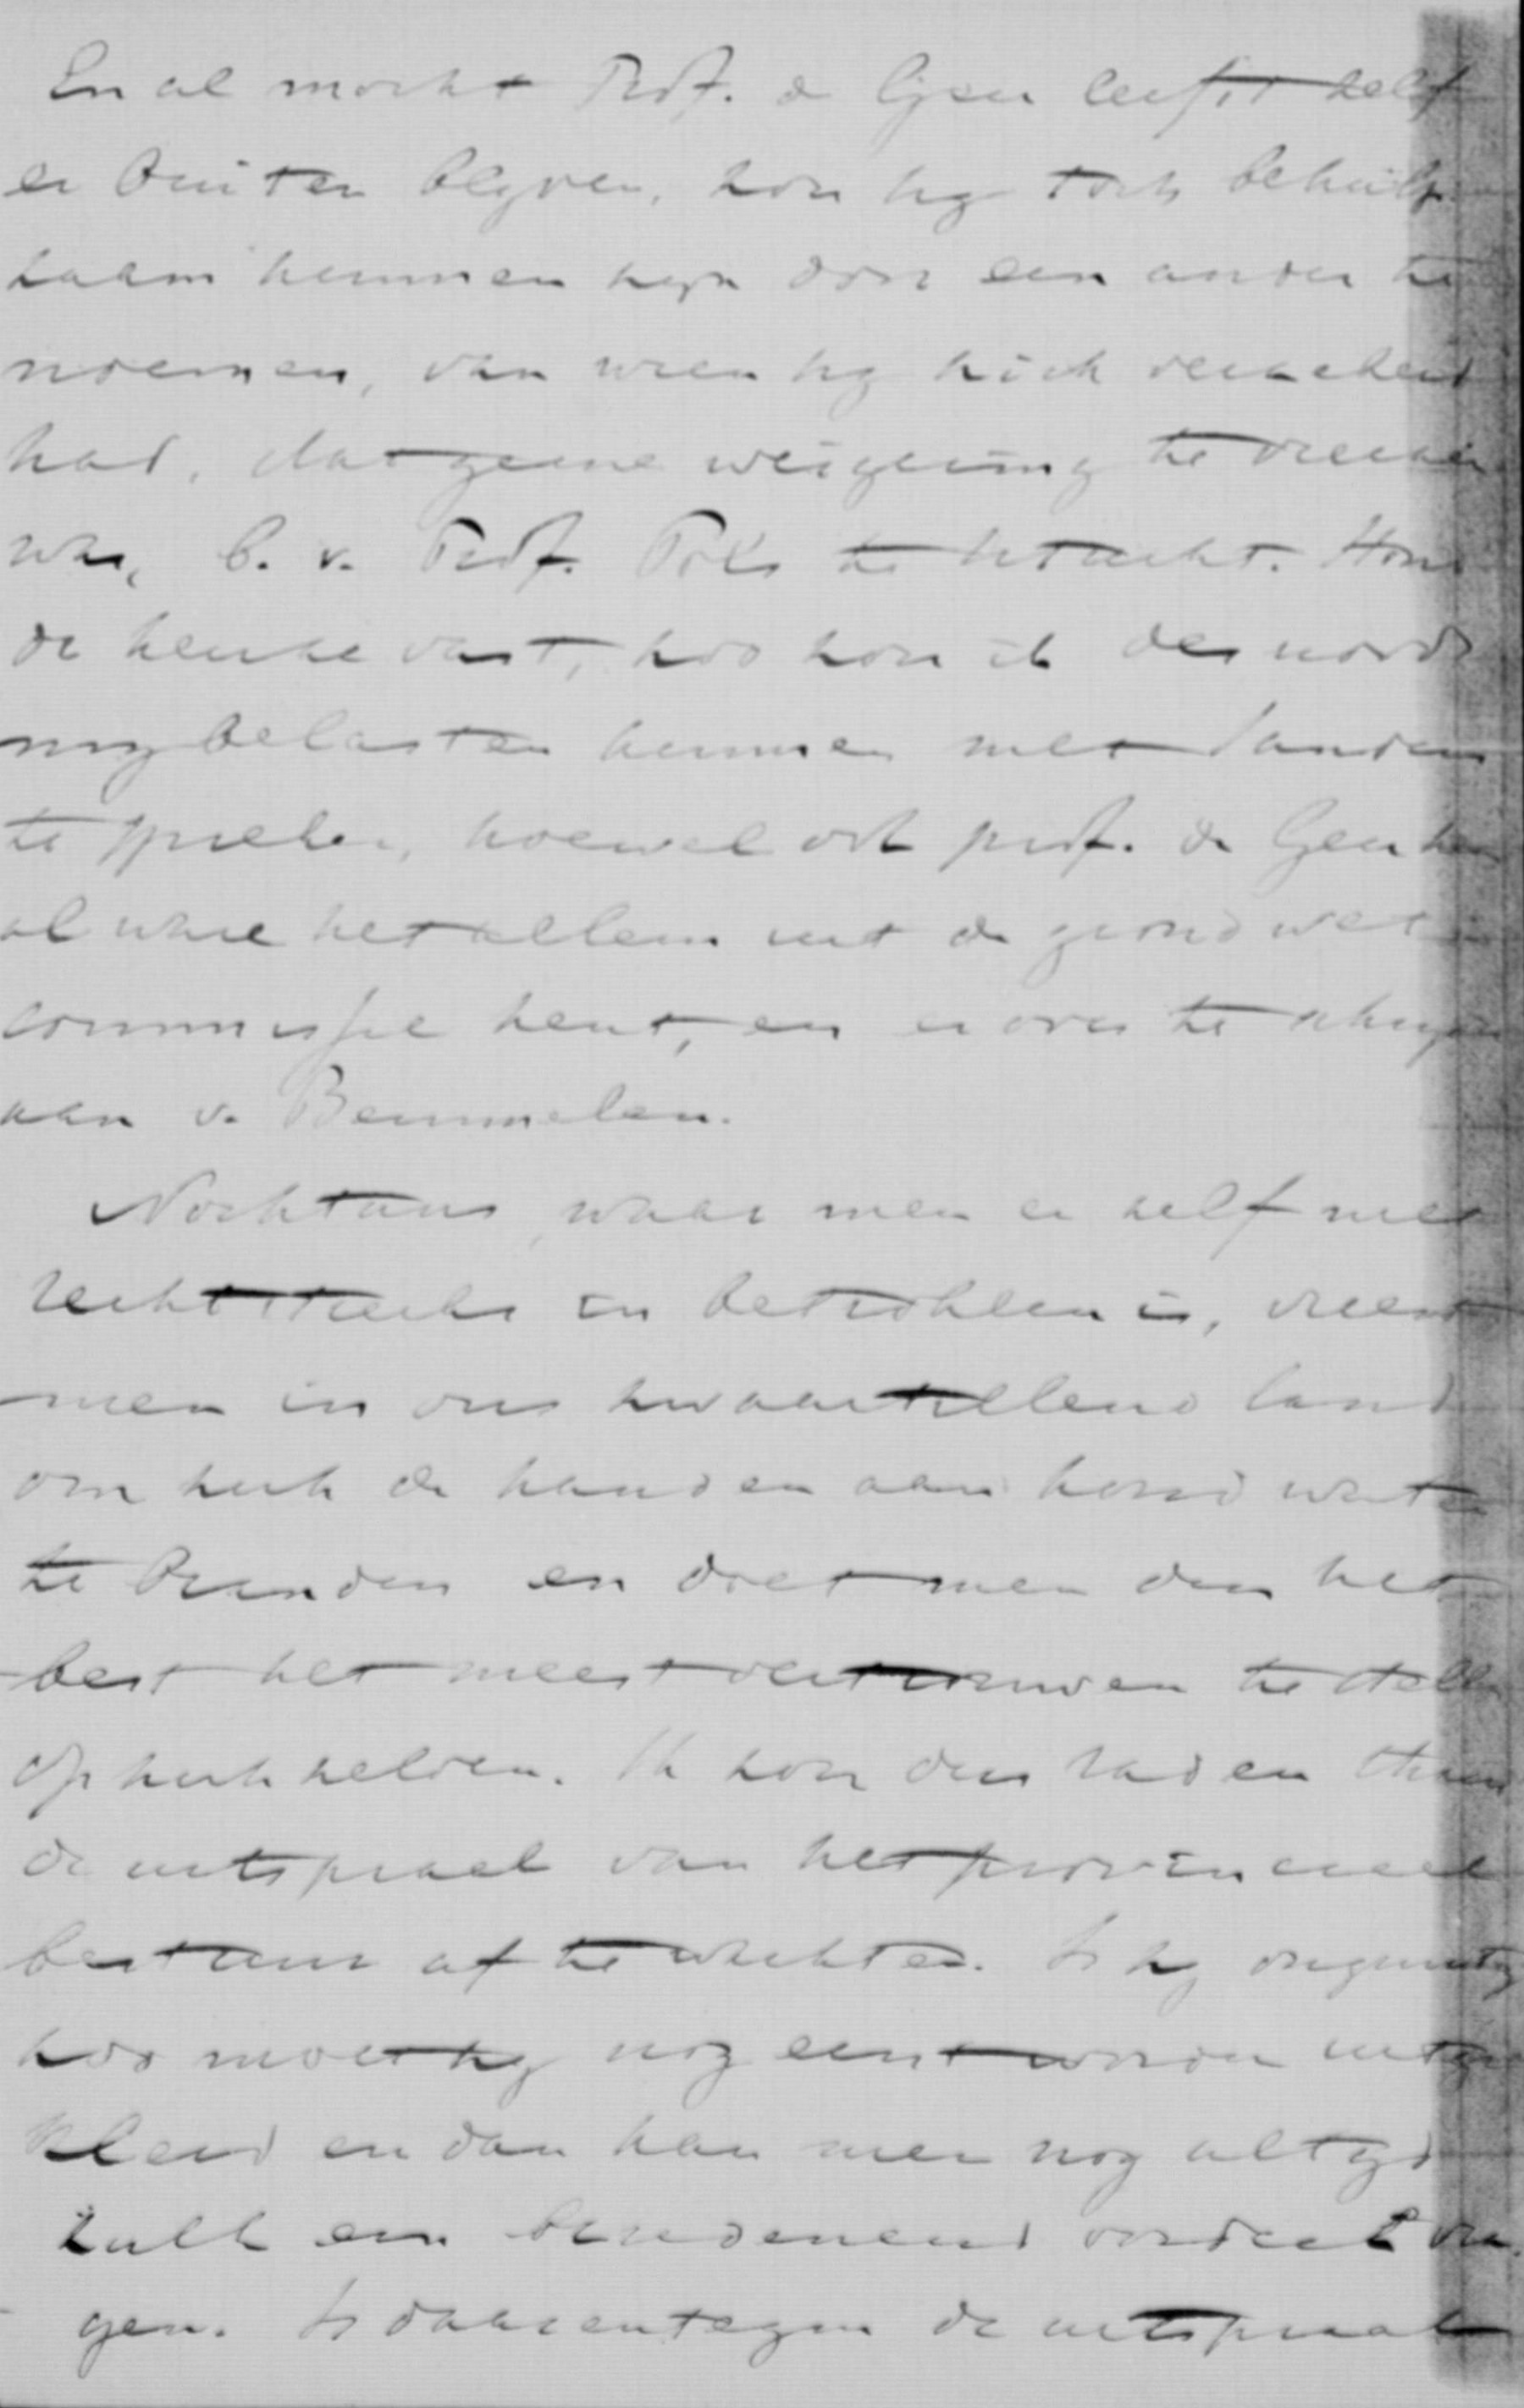 En al mocht Prof. de Geer liefst zelf
er buiten blyven, zou hy toch behulp
zaam kunnen zyn door een ander te
noemen, van wien hy zich verzekerd
had, dat geene weigering te vreezen
was, b. v. Prof. Pols te Utrecht. Hou
de keuze vast, zoo zou ik des noods
my belasten kunnen met
te spreken, hoewel ook prof. de Geer hem
al ware het alleen uit de grondwet
commissie kent, en er over te schryven
aan v. Bemmelen.
Nochtans, waar men er zelf niet
rechtstreeks in betrokken is, vreest
men in ons zwaartillend land
om zich de handen aan koud water
te branden en doet men dus het
best het meest vertrouwen te stellen
op zich zelven. Ik zou dus raden thans
de uitspraak van het provinciaal
bestuur af te wachten. Is zy ongunstig
zoo moet zy nog eerst worden uitge
kleed en dan kan men nog altyd
zulk een beredeneerd oordeel vra
gen. Is daarentegen de uitspraak